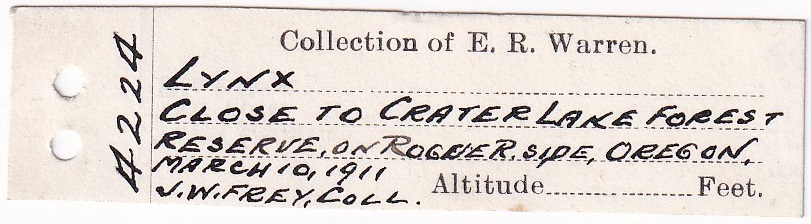 4224
Collection of E. R. Warren.
LYNX
CLOSE TO CRATER LAKE FOREST
RESERVE, ON ROGUE R. SIDE, OREGON,
MARCH 10, 1911
J.W. FREY, COLL. Altitude Feet.